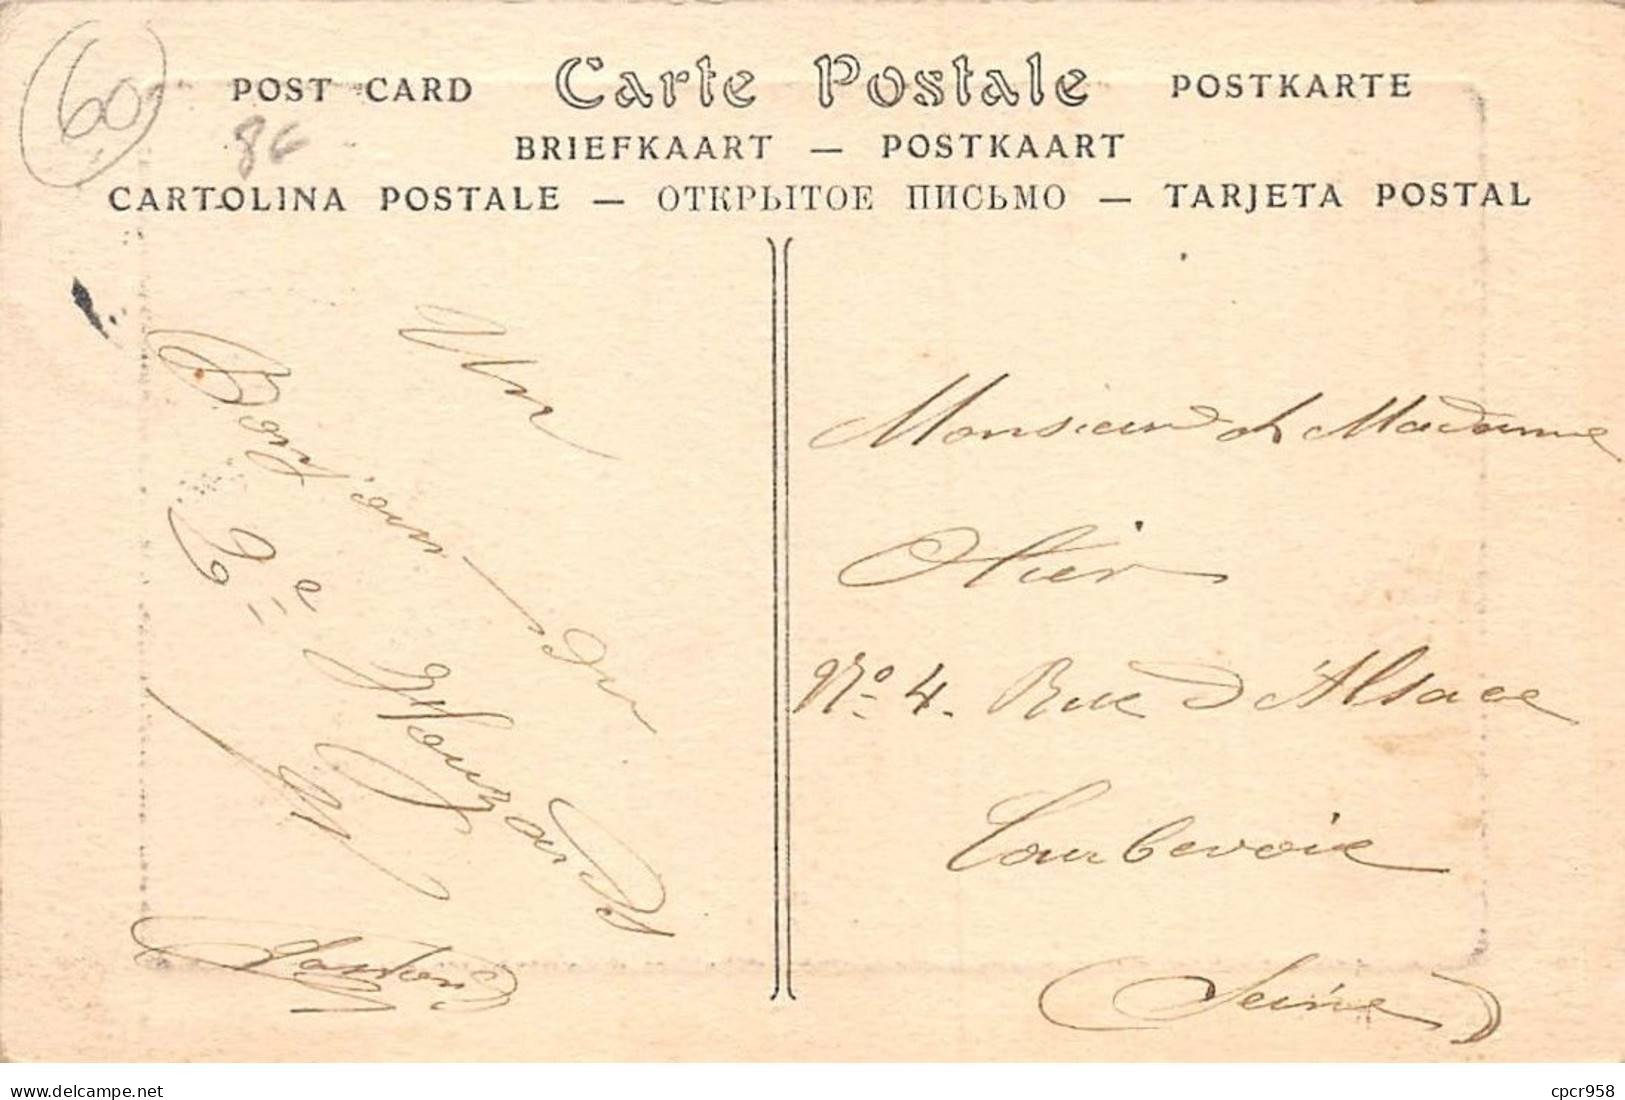 60
POST CARD Carte Postale POSTKARTE
8€
BRIEFKAART — POSTKAART
CARTOLINA POSTALE — ОТКРЫТОЕ ПИСЬМО — TARJETA POSTAL
Un
Bonjour du
2e Houzards
Monsieur et Madame
Olier
No 4. Rue d'Alsace
Courbevoie
Seine
delcampe.net
cpcr958